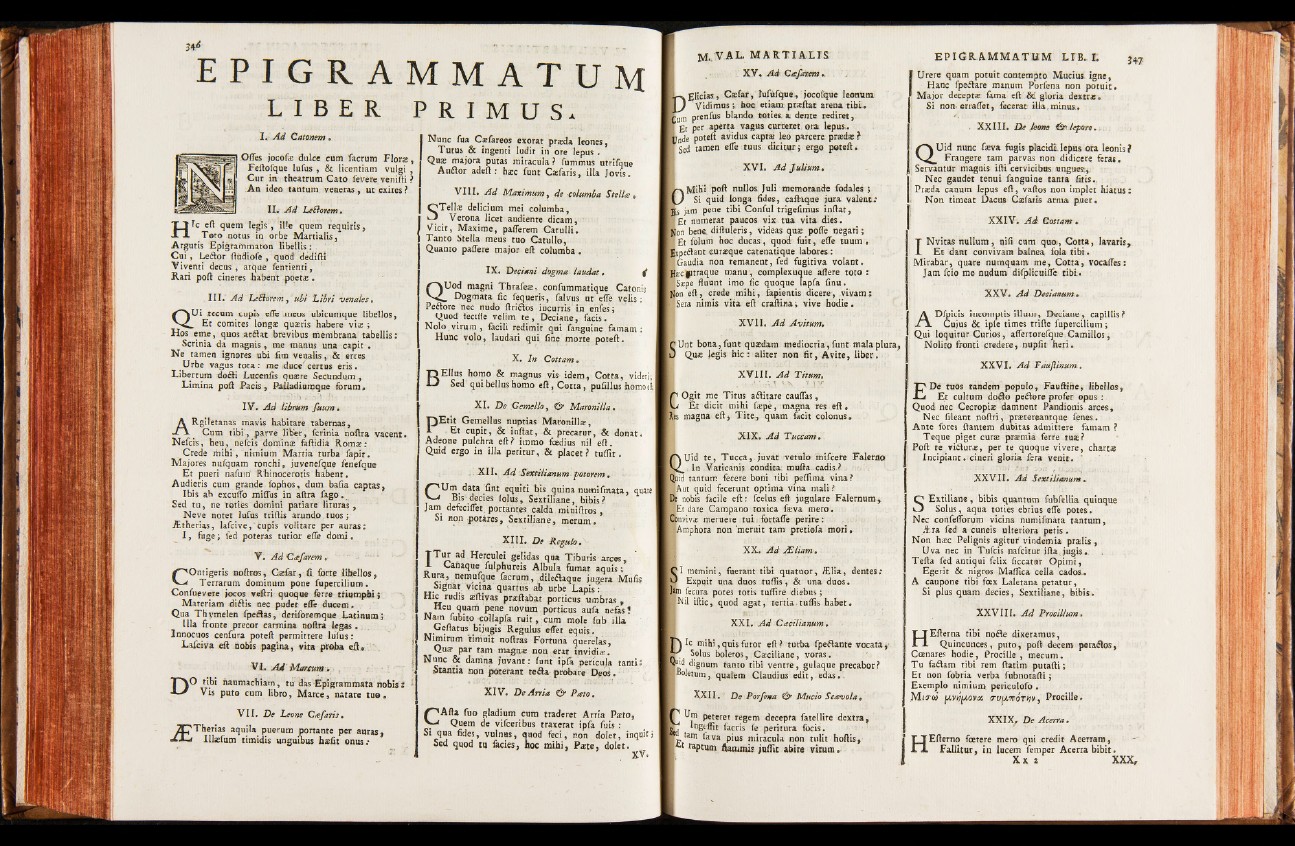 346
EPIGRAMMATUM
LIBER PRIMUS.
I. Ad Catonem.
NOsses jocosæ dulce cum sacrum Floræ,
Festosque lusus, & licentiam vulgi,
Cur in theatrum Cato severe venisti?
An ideo tantum veneras, ut exires?
II. Ad Lectorem.
HIc est quem legis, ille quem requiris,
Toto notus in orbe Martialis,
Argutis Epigrammaton libellis:
Cui, Lector studiose, quod dedisti
Viventi decus, atque sentienti,
Rari post cineres habent poetæ.
III. Ad Lectorem, ubi Libri venales.
QUi tecum cupis esse meos ubicumque libellos,
Et comites longæ quæris habere viæ;
Hos eme, quos arctat brevibus membrana tabellis:
Scrinia da magnis, me manus una capit.
Ne tamen ignores ubi sim venalis, & erres
Urbe vagus tota: me duce certus eris.
Libertum docti Lucensis quære Secundum,
Limina post Pacis, Palladiumque forum.
IV. Ad librum suum.
ARgiletanas mavis habitare tabernas,
Cum tibi, parve liber, scrinia nostra vacent.
Nescis, heu, nescis dominæ fastidia Romæ:
Crede mihi, nimium Martia turba sapit.
Majores nusquam ronchi, juvenesque senesque
Et pueri nasum Rhinocerotis habent.
Audieris cum grande sophos, dum basia captas,
Ibis ab excusso missus in astra sago.
Sed tu, ne toties domini patiare lituras,
Neve notet lusus tristis arundo tuos;
Ætherias, lascive, cupis volitare per auras:
I, fuge; sed poteras tutior esse domi.
V. Ad Cæsarem.
COntigeris nostros, Cæsar, si forte libellos,
Terrarum dominum pone supercilium.
Consuevere jocos vestri quoque ferre triumphi;
Materiam dictis nec pudet esse ducem.
Qua Thymelen spectas, derisoremque Latinum;
Illa fronte precor carmina nostra legas.
Innocuos censura potest permittere lusus:
Lasciva est nobis pagina, vita proba est.
VI. Ad Marcum.
DO tibi naumachiam, tu das Epigrammata nobis:
Vis puto cum libro, Marce, natare tuo.
VII. De Leone Cæsaris.
ÆTherias aquila puerum portante per auras,
Illæsum timidis unguibus hæsit onus:
Nunc sua Cæsareos exorat præda leones,
Tutus & ingenti ludit in ore lepus.
Quæ majora putas miracula? summus utrisque
Auctor adest: hæc sunt Cæsaris, illa Jovis.
VIII. Ad Maximum, de columba Stellæ.
STellæ delicium mei columba,
Verona licet audiente dicam,
Vicit, Maxime, passerem Catulli.
Tanto Stella meus tuo Catullo,
Quanto passere major est columba.
IX. Deciani dogma laudat.
QUod magni Thraseæ, consummatique Catonis
Dogmata sic sequeris, salvus ut esse velis;
Pectore nec nudo strictos incurris in enses;
Quod fecisse velim te, Deciane, facis.
Nolo virum, facili redimit qui sanguine famam:
Hunc volo, laudari qui sine morte potest.
X. In Cottam.
BEllus homo & magnus vis idem, Cotta, videri,
Sed qui bellus homo est, Cotta, pusillus homo est.
XI. De Gemello, & Maronilla.
PEtit Gemellus nuptias Maronillæ,
Et cupit, & instat, & precatur, & donat.
Adeone pulchra est? immo fœdius nil est.
Quid ergo in illa petitur, & placet? tussit.
XII. Ad Sextilianum potorem.
CUm data sint equiti bis quina numismata, quare
Bis decies solus, Sextiliane, bibis?
Jam defecisset portantes calda ministros,
Si non potares, Sextiliane, merum.
XIII. De Regulo.
ITur ad Herculei gelidas qua Tiburis arces,
Canaque sulphureis Albula fumat aquis:
Rura, nemusque sacrum, dilectaque jugera Musis
Signat vicina quartus ab urbe Lapis:
Hic rudis æstivas præstabat porticus umbras,
Heu quam pene novum porticus ausa nefas!
Nam subito collapsa ruit, cum mole sub illa
Gestatus bijugis Regulus esset equis.
Nimirum timuit nostras Fortuna querelas,
Quæ par tam magnæ non erat invidiæ.
Nunc & damna juvant: sunt ipsa pericula tanti:
Stantia non poterant tecta probare Deos.
XIV. De Arria & Pæto.
CAsta suo gladium cum traderet Arria Pæto,
Quem de visceribus traxerat ipsa suis:
Si qua fides, vulnus, quod feci, non dolet, inquit;
Sed quod tu facies, hoc mihi, Pæte, dolet.
XV.
M. VAL. MARTIALIS
XV. Ad Cæsarem.
DElicias, Cæsar, lususque, jocosque leonum
Vidimus; hoc etiam præstat arena tibi.
Cum prensus blando toties a dente rediret,
Et per aperta vagus curreret ora lepus.
Unde potest avidus captæ leo parcere prædæ?
Sed tamen esse tuus dicitur; ergo potest.
XVI. Ad Julium.
O Mihi post nullos Juli memorande sodales;
Si quid longa fides, castaque jura valent:
Bis jam pene tibi Consul trigesimus instat,
Et numerat paucos vix tua vita dies.
Non bene distuleris, videas quæ posse negari;
Et solum hoc ducas, quod fuit, esse tuum.
Expectant curæque catenatique labores:
Gaudia non remanent, sed fugitiva volant.
Hæc utraque manu, complexuque assere toto:
Sæpe fluunt imo sic quoque lapsa sinu.
Non est, crede mihi, sapientis dicere, vivam:
Sera nimis vita est crastina, vive hodie.
XVII. Ad Avitum.
SUnt bona, sunt quædam mediocria, sunt mala plura,
Quæ legis hic: aliter non fit, Avite, liber.
XVIII. Ad Titum.
COgit me Titus actitare caussas,
Et dicit mihi sæpe, magna res est.
Res magna est, Tite, quam facit colonus.
XIX. Ad Tuccam.
QUid te, Tucca, juvat vetulo miscere Falerno
In Vaticanis condita musta cadis?
Quid tantum fecere boni tibi pessima vina?
Aut quid fecerunt optima vina mali?
De nobis facile est: scelus est jugulare Falernum,
Et dare Campano toxica sæva mero.
Convivæ meruere tui fortasse perire:
Amphora non meruit tam pretiosa mori.
XX. Ad Æliam.
SI memini, fuerant tibi quatuor, Ælia, dentes:
Expuit una duos tussis, & una duos.
Jam secura potes totis tussire diebus;
Nil istic, quod agat, tertia tussis habet.
XXI. Ad Cæcilianum.
DIc mihi, quis furor est? turba spectante vocata,
Solus boletos, Cæciliane, voras.
Quid dignum tanto tibi ventre, gulaque precabor?
Boletum, qualem Claudius edit, edas.
XXII. De Porsena & Mucio Scævola.
CUm peteret regem decepta satellire dextra,
Ingessit sacris se peritura focis.
Sed tam sæva pius miracula non tulit hostis,
Et raptum flammis jussit abire virum.
EPIGRAMMATUM LIB. I.
347
Urere quam potuit contempto Mucius igne,
Hanc spectare manum Porsena non potuit.
Major deceptæ fama est & gloria dextræ.
Si non errasset, fecerat illa minus.
XXIII. De leone & lepore.
QUid nunc sæva fugis placidi lepus ora leonis?
Frangere tam parvas non didicere feras.
Servantur magnis isti cervicibus ungues,
Nec gaudet tenui sanguine tanta sitis.
Præda canum lepus est, vastos non implet hiatus:
Non timeat Dacus Cæsaris arma puer.
XXIV. Ad Cottam.
INvitas nullum, nisi cum quo, Cotta, lavaris,
Et dant convivam balnea sola tibi.
Mirabar, quare numquam me, Cotta, vocasses:
Jam scio me nudum displicuisse tibi.
XXV. Ad Decianum.
ADspicis incomptis illum, Deciane, capillis?
Cujus & ipse times triste supercilium;
Qui loquitur Curios, assertoresque Camillos,
Nolito fronti credere, nupsit heri.
XXVI. Ad Faustinum.
EDe tuos tandem populo, Faustine, libellos,
Et cultum docto pectore profer opus:
Quod nec Cecropiæ damnent Pandionis arces,
Nec sileant nostri, prætereantque senes.
Ante fores stantem dubitas admittere famam?
Teque piget curæ præmia ferre tuæ?
Post te victuræ, per te quoque vivere, chartæ
Incipiant. cineri gloria sera venit.
XXVII. Ad Sextilianum.
SExtiliane, bibis quantum subsellia quinque
Solus, aqua toties ebrius esse potes.
Nec consessorum vicina numismata tantum,
Æra sed a cuneis ulteriora petis.
Non hæc Pelignis agitur vindemia prælis,
Uva nec in Tuscis nascitur ista jugis.
Testa sed antiqui felix siccatur Opimi,
Egerit & nigros Massica cella cados.
A caupone tibi fœx Laletana petatur,
Si plus quam decies, Sextiliane, bibis.
XXVIII. Ad Procillum.
HEsterna tibi nocte dixeramus,
Quincunces, puto, post decem peractos,
Cœnares hodie, Procille, mecum.
Tu factam tibi rem statim putasti;
Et non sobria verba subnotasti;
Exemplo nimium periculoso.
Μισῶ μνήμονα συμπότην, Procille.
XXIX. De Acerra.
HEsterno fœtere mero qui credit Acerram,
Fallitur, in lucem semper Acerra bibit.
Xx 2
XXX.